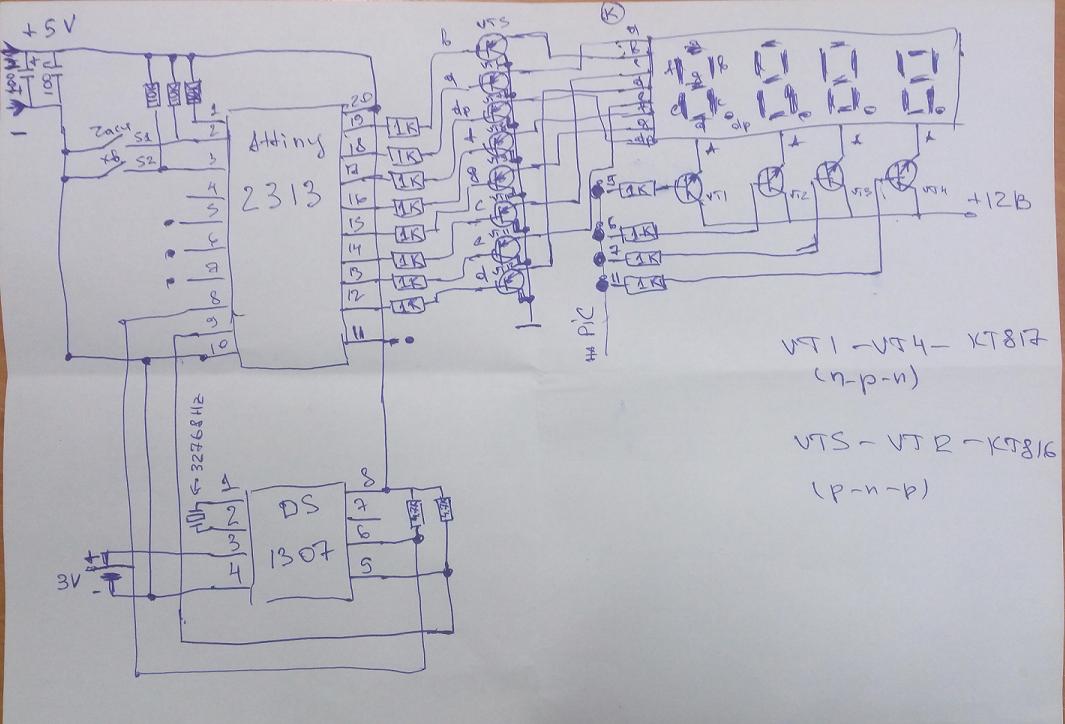 +5V
100
часы S1
хв S2
1
2
3
4
5
6
7
8
9
10
Attiny
2313
20
19
18
17
16
15
14
13
12
11
1K
1K
1K
1K
1K
1K
1K
VT5
б
а
dp
c
e
d
K
A
B
C
d
dp
A
A
A
A
VT1
VT2
VT3
VT4
+12В
5
1K
6
1K
7
1K
11
1K
на PiC
VT1-VT4- КТ817
(n-p-n)
VT5-VT12-КТ816
(p-n-p)
32768Hz
1
2
3
4
DS
1307
8
7
6
5
4,7K
4,7K
+
3V
-